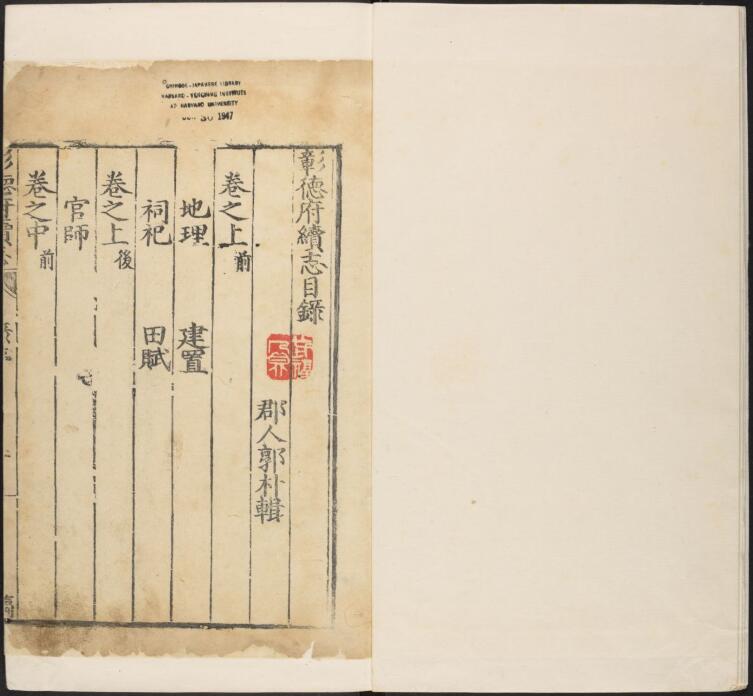 CHINESE-JAPANESE LIBRARY
HARVARD-YENCHING INSTITUTE
AT HARVARD UNIVERSITY
30 1947
彰德府續志目錄
郡人郭朴輯
卷之上前
地理 建置
祠祀 田賦
卷之上後
官師
卷之中前